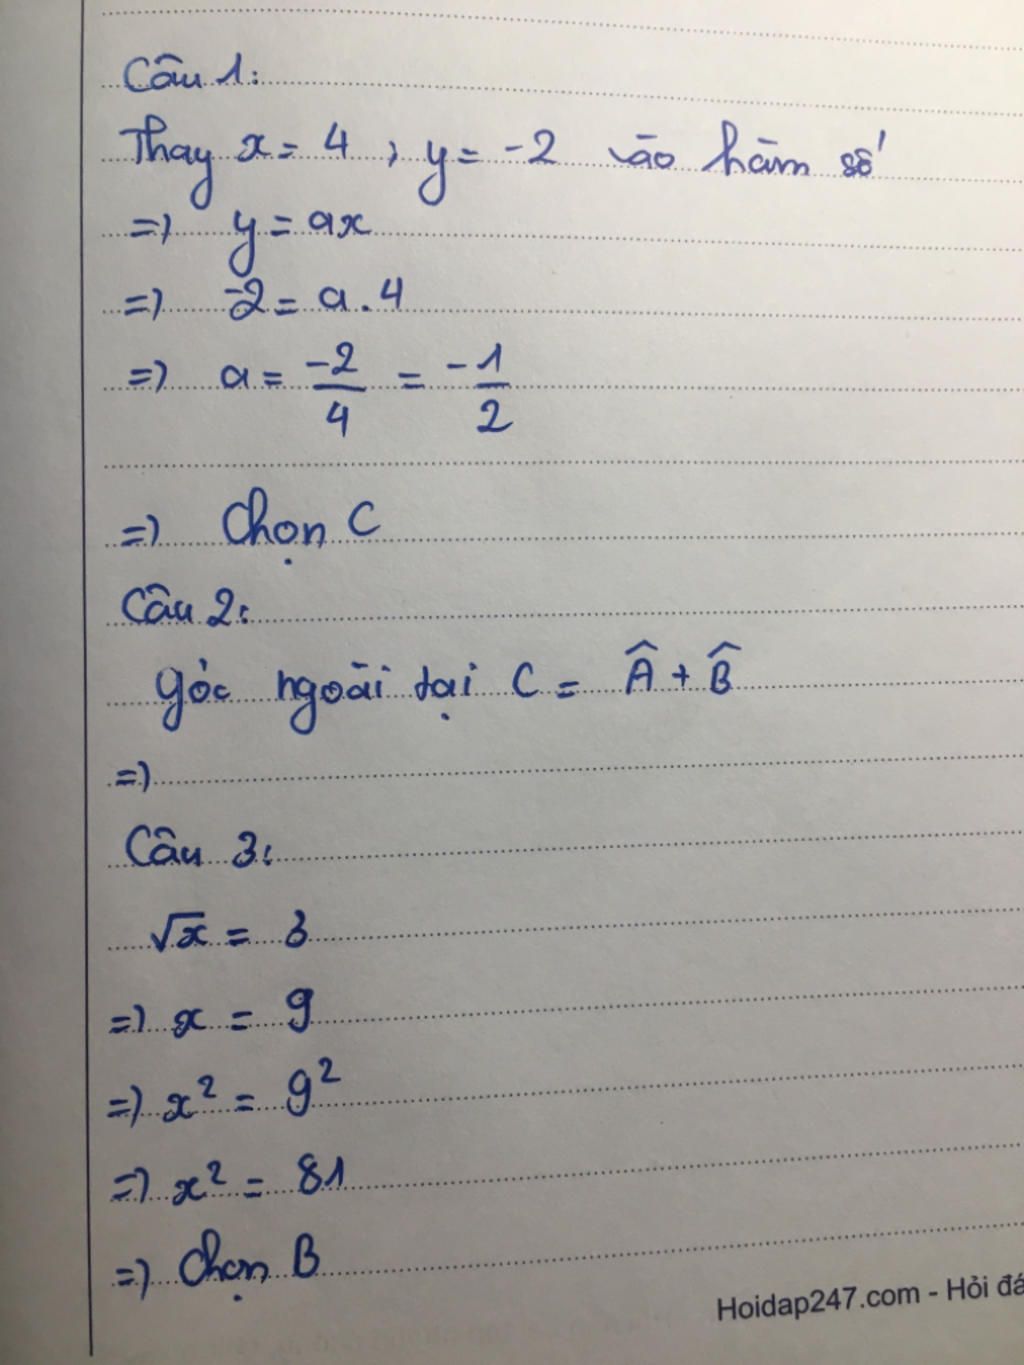 Câu 1:
Thay x = 4 , y = -2 vào hàm số
=> y = ax
=> -2 = a . 4
=> a = -2/4 = -1/2
=> Chọn C
Câu 2:
góc ngoài tại C = Â + B̂
=>
Câu 3:
√x = 3
=> x = 9
=> x² = 9²
=> x² = 81
=> Chọn B
Hoidap247.com - Hỏi đá